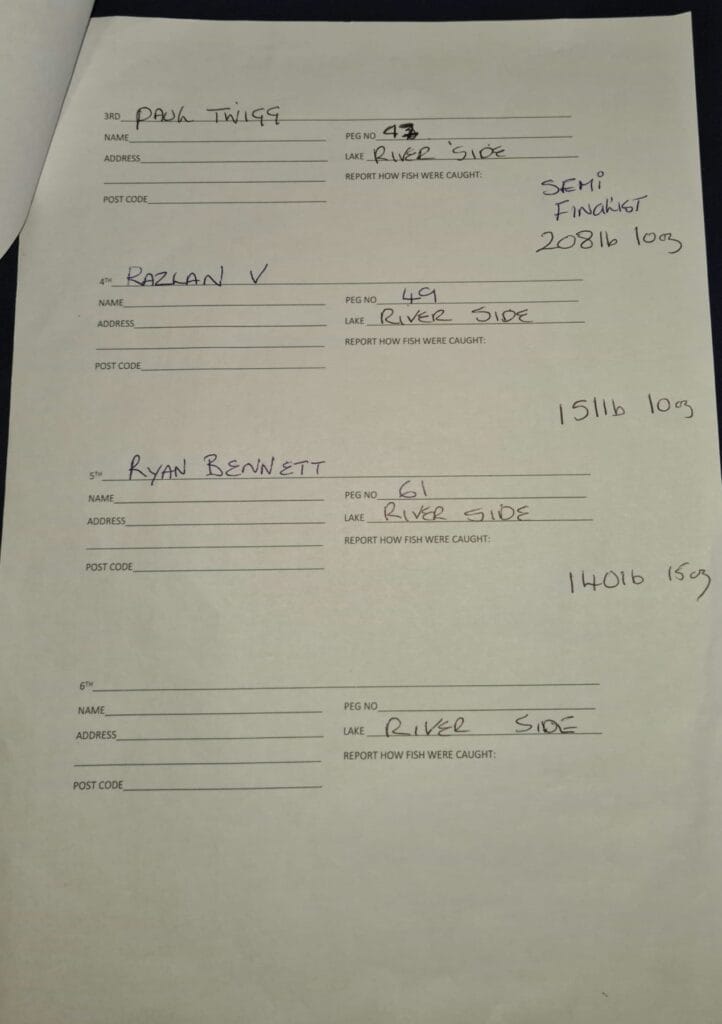 3RD PAUL TWIGG
NAME PEG NO
ADDRESS LAKE RIVER SIDE
REPORT HOW FISH WERE CAUGHT:
POST CODE
SEMI
FINALIST
208lb 10oz
4TH RAZLAN V
NAME PEG NO 49
ADDRESS LAKE RIVER SIDE
REPORT HOW FISH WERE CAUGHT:
POST CODE
151lb 10oz
5TH RYAN BENNETT
NAME PEG NO 61
ADDRESS LAKE RIVER SIDE
REPORT HOW FISH WERE CAUGHT:
POST CODE
140lb 15oz
6TH
NAME PEG NO
ADDRESS LAKE RIVER SIDE
REPORT HOW FISH WERE CAUGHT:
POST CODE